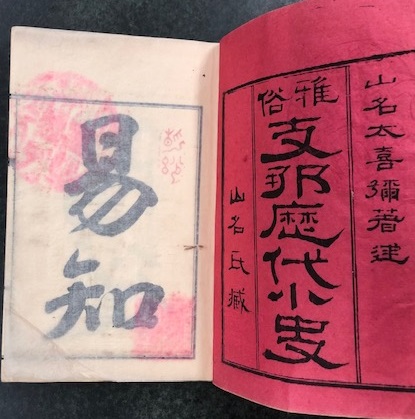 山名太喜彌著述
雅俗
支那歷代小史
山名氏藏
易知